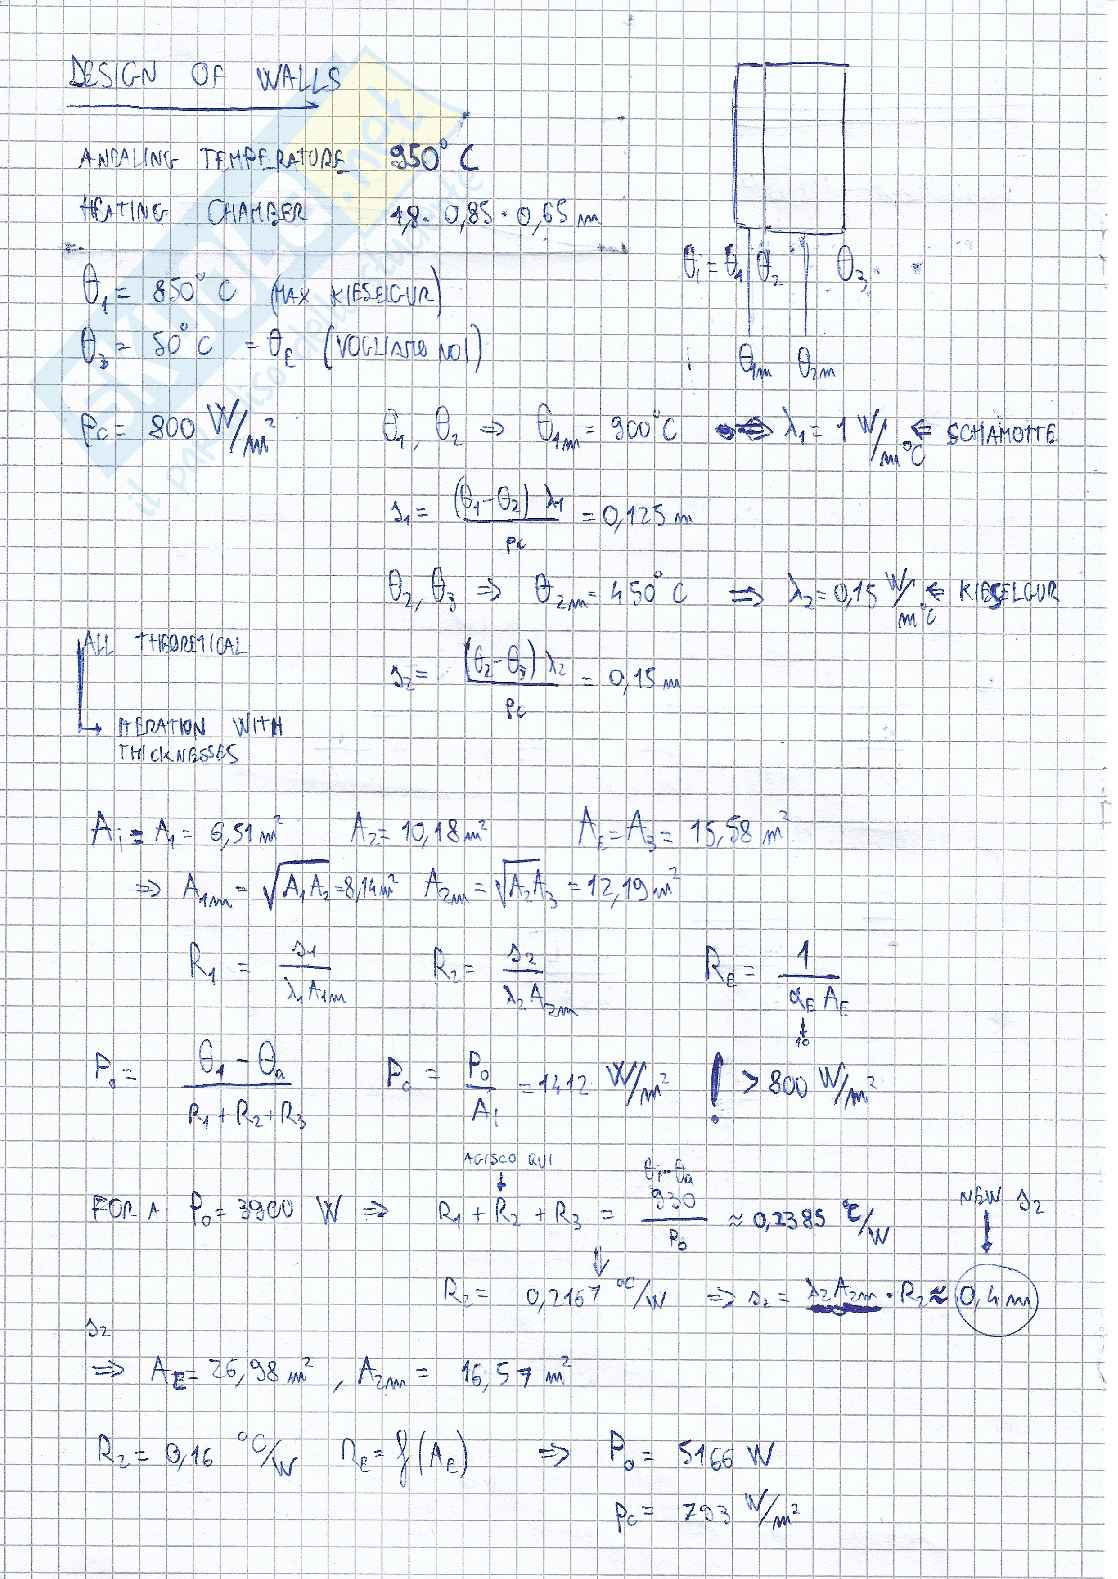 DESIGN OF WALLS
ANEALING TEMPERATURE 950°C
HEATING CHAMBER 1,8 · 0,85 · 0,65 m
θi = θ1 θ2 θ3
θ1 = 850°C (MAX KIESELGUR)
θ3 = 50°C = θE (VOGLIAMO NOI)
θ1m θ2m
pc = 800 W/m² θ1, θ2 ⇒ θ1m = 900°C ⇒ λ1 = 1 W/m°C ⇐ SCHAMOTTE
s1 = (θ1-θ2) λ1 / pc = 0,125 m
θ2, θ3 ⇒ θ2m = 450°C ⇒ λ2 = 0,15 W/m°C ⇐ KIESELGUR
ALL THEORETICAL
s2 = (θ2-θ3) λ2 / pc = 0,15 m
→ ITERATION WITH
THICKNESSES
Ai = A1 = 6,51 m² A2 = 10,18 m² AE = A3 = 15,58 m²
⇒ A1m = √A1A2 = 8,14 m² A2m = √A2A3 = 12,19 m²
R1 = s1 / λ1 A1m R2 = s2 / λ2 A2m RE = 1 / αE AE
↓
10
P0 = θ1 - θa / R1 + R2 + R3 Pc = P0 / Ai = 1412 W/m² ! > 800 W/m²
AGISCO QUI
↓
FOR A P0 = 3900 W ⇒ R1 + R2 + R3 = θi-θa 930 / P0 ≈ 0,2385 °C/W
NEW s2
↓
R2 = 0,2167 °C/W ⇒ s2 = λ2A2m · R2 ≈ 0,4 m
s2
⇒ AE = 26,98 m², A2m = 16,57 m²
R2 = 0,16 °C/W RE = f(AE) ⇒ P0 = 5166 W
pc = 793 W/m²